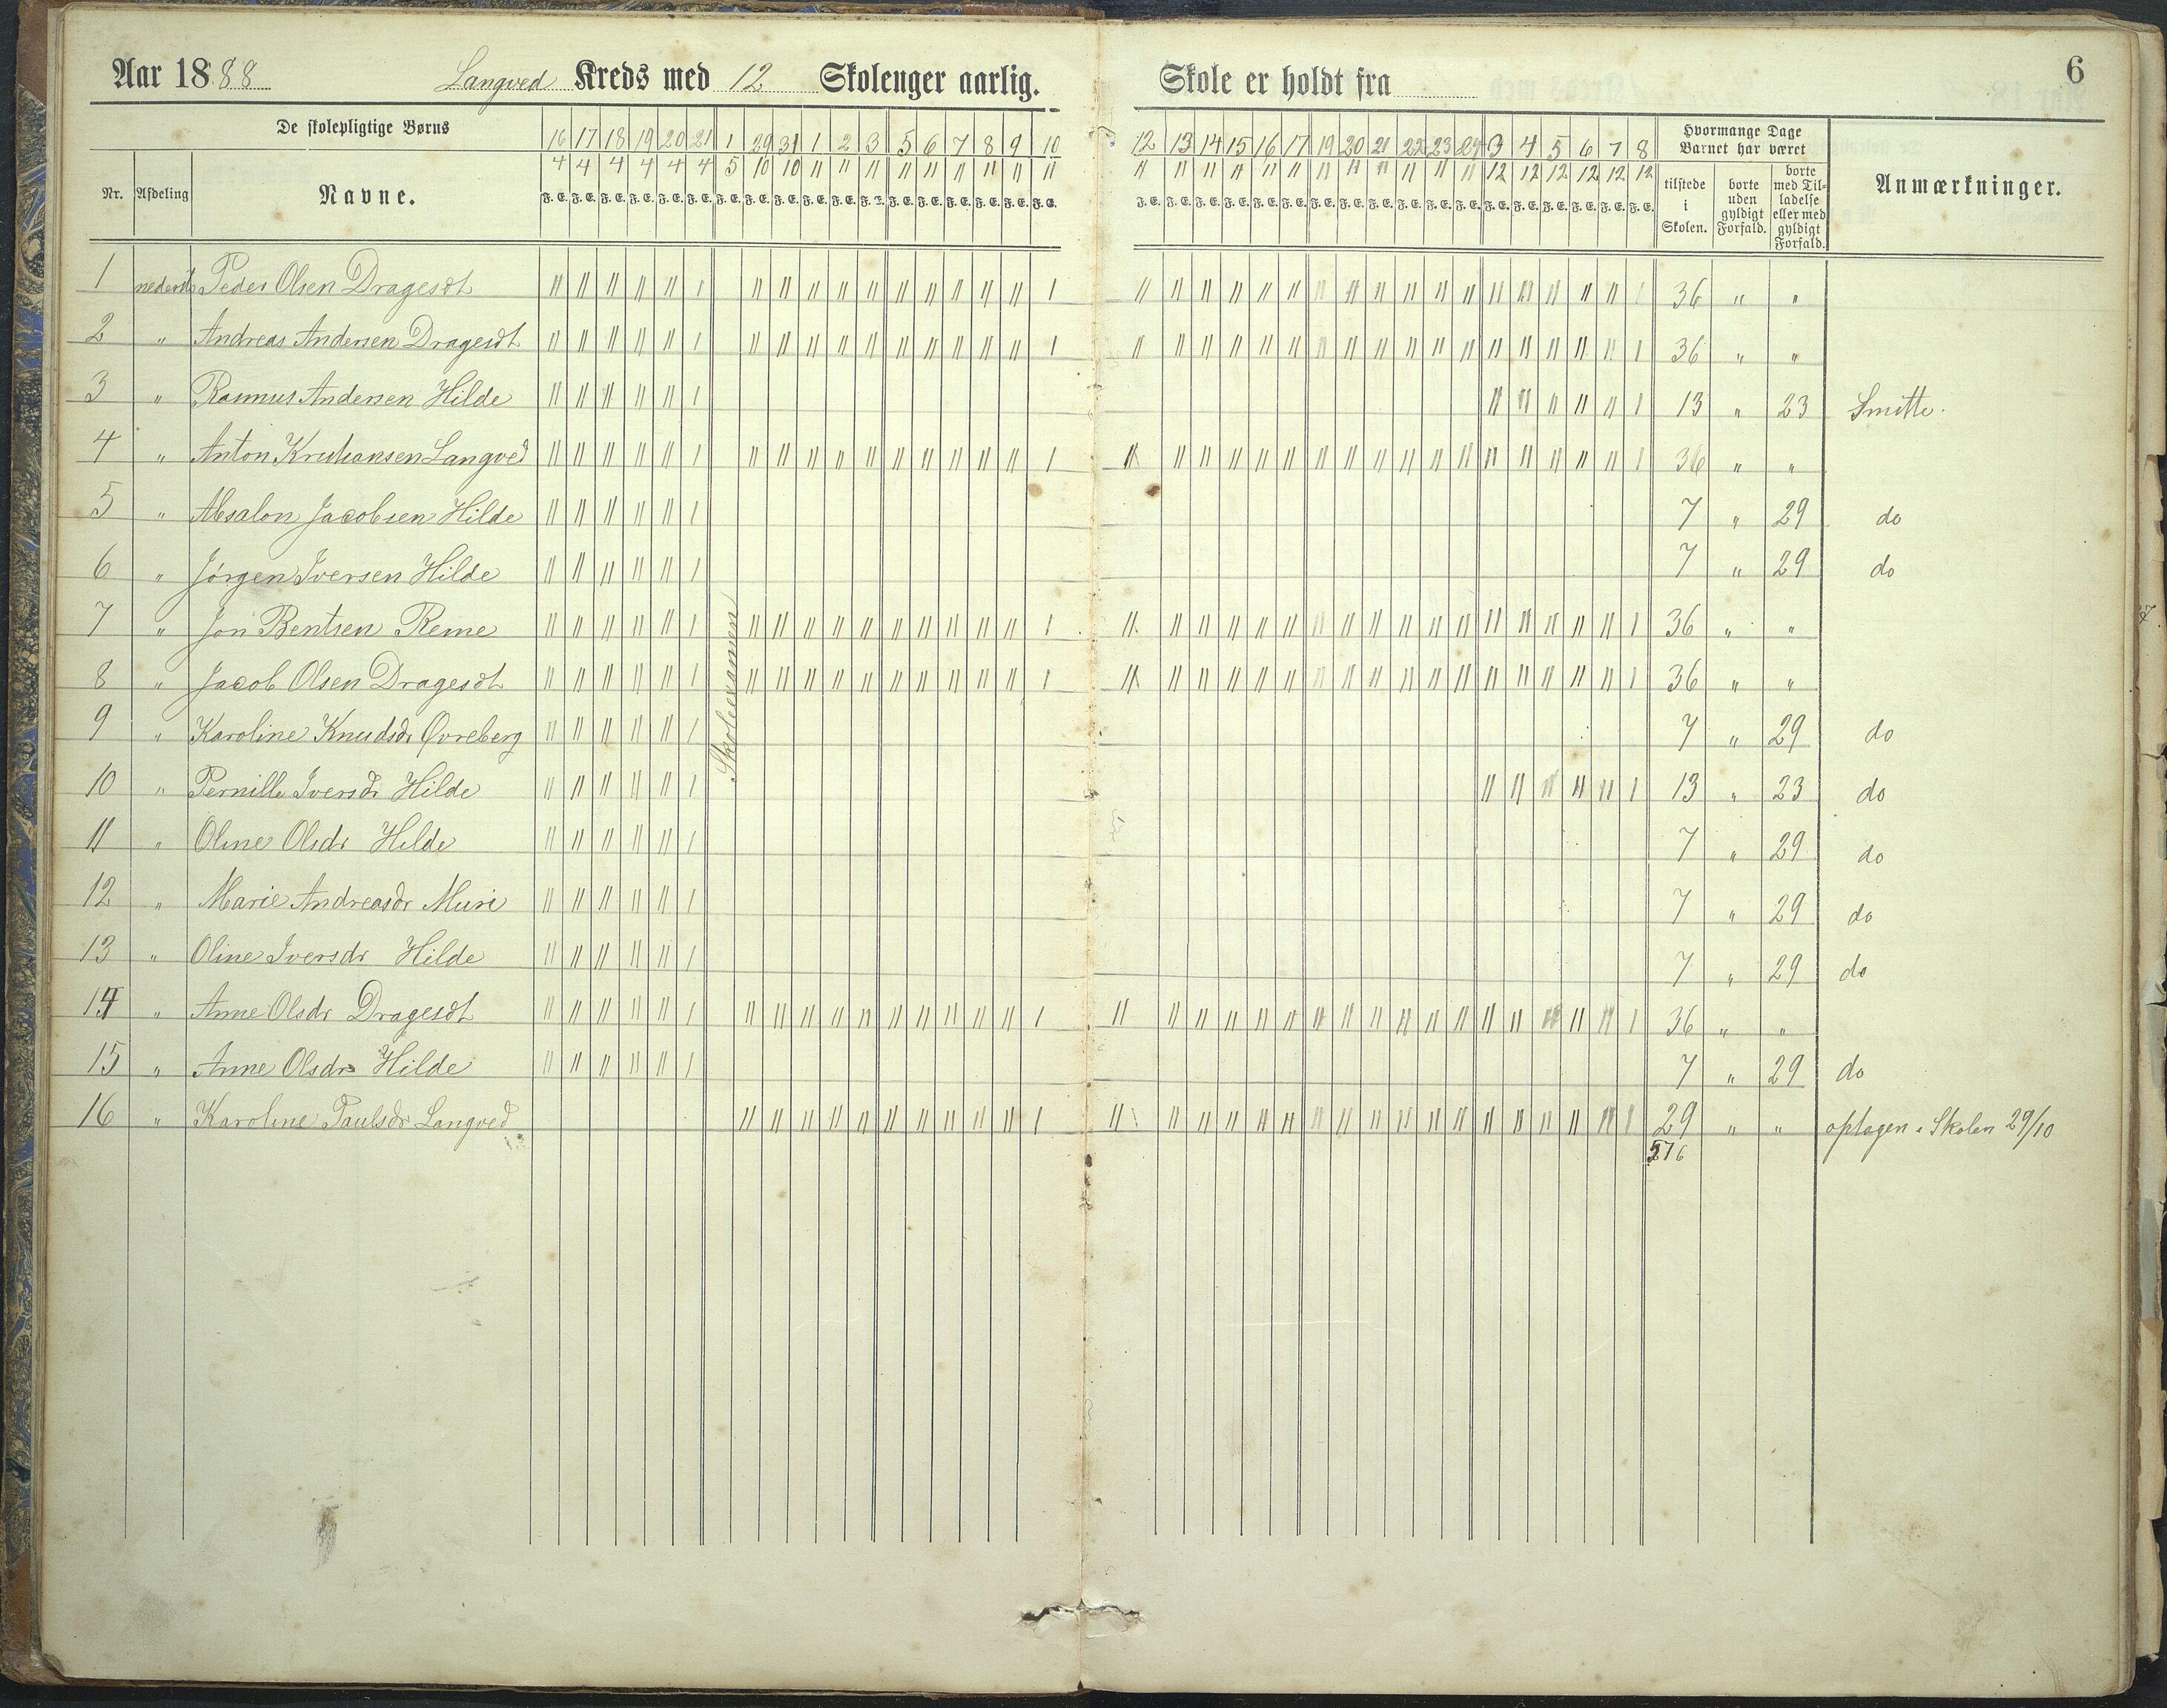 Aar 1888 Langved Kreds med 12 Skolenger aarlig. Skole er holdt fra 6
De skolepligtige Børns 16 17 18 19 20 21 1 29 31 1 2 3 5 6 7 8 9 10 12 13 14 15 16 17 19 20 21 22 23 24 3 4 5 6 7 8 Hvormange Dage Barnet har været
4 4 4 4 4 4 5 10 10 11 11 11 11 11 11 11 11 11 11 11 11 11 11 11 11 11 11 11 11 11 12 12 12 12 12 12
Nr. Afdeling Navne. F. E. F. E. F. E. F. E. F. E. F. E. F. E. F. E. F. E. F. E. F. E. F. E. F. E. F. E. F. E. F. E. F. E. F. E. F. E. F. E. F. E. F. E. F. E. F. E. F. E. F. E. F. E. F. E. F. E. F. E. F. E. F. E. F. E. F. E. F. E. F. E. tilstede i Skolen. borte uden gyldigt Forfald. borte med Tilladelse eller med gyldigt Forfald. Anmærkninger.
1 Peder Olsen Dragesdt 36 " "
2 " Andreas Andersen Dragesdt 36 " "
3 " Rasmus Andersen Hilde 13 " 23 Smitte.
4 " Anton Kristiansen Langved 36 " "
5 " Absalon Jacobsen Hilde 7 " 29 do
6 " Jörgen Iversen Hilde 7 " 29 do
7 " Jon Bentsen Reme 36 " "
8 " Jacob Olsen Dragesdt 36 " "
Skoleexamen
9 " Karoline Knudsdr Øvreberg 7 " 29 do
10 " Pernille Iversdr Hilde 13 " 23 do
11 " Oline Olsdr Hilde 7 " 29 do
12 " Marie Andreasdr Muri 7 " 29 do
13 " Oline Iversdr Hilde 7 " 29 do
14 " Anne Olsdr Dragesdt 36 " "
15 " Anne Olsdr Hilde 7 " 29 do
16 " Karoline Paulsdr Langved 29 " " optagen i Skolen 29/10